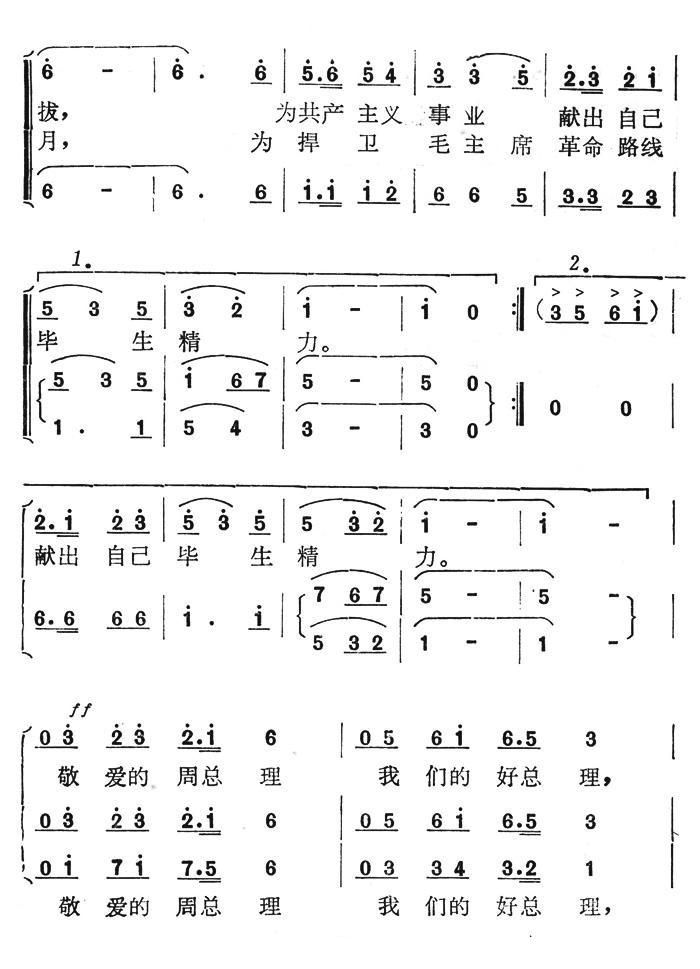 6 - 6. 6 5.6 5 4 3 3 5 2.3 2 1
拔， 为共产 主义 事业 献出 自己
月， 为 捍 卫 毛 主 席 革命 路线
6 - 6. 6 1.1 1 2 6 6 5 3.3 2 3
1. 2.
5 3 5 3 2 1 - 1 0 (3 5 6 1)
毕 生 精 力。
5 3 5 1 6 7 5 - 5 0
1. 1 5 4 3 - 3 0 0 0
2.1 2 3 5 3 5 5 3 2 1 - 1 -
献出 自己 毕 生 精 力。
7 6 7 5 - 5 -
6.6 6 6 1. 1
5 3 2 1 - 1 -
ff
0 3 2 3 2.1 6 0 5 6 1 6.5 3
敬 爱的 周总 理 我 们的 好总 理，
0 3 2 3 2.1 6 0 5 6 1 6.5 3
0 1 7 1 7.5 6 0 3 3 4 3.2 1
敬 爱的 周总 理 我 们的 好总 理，